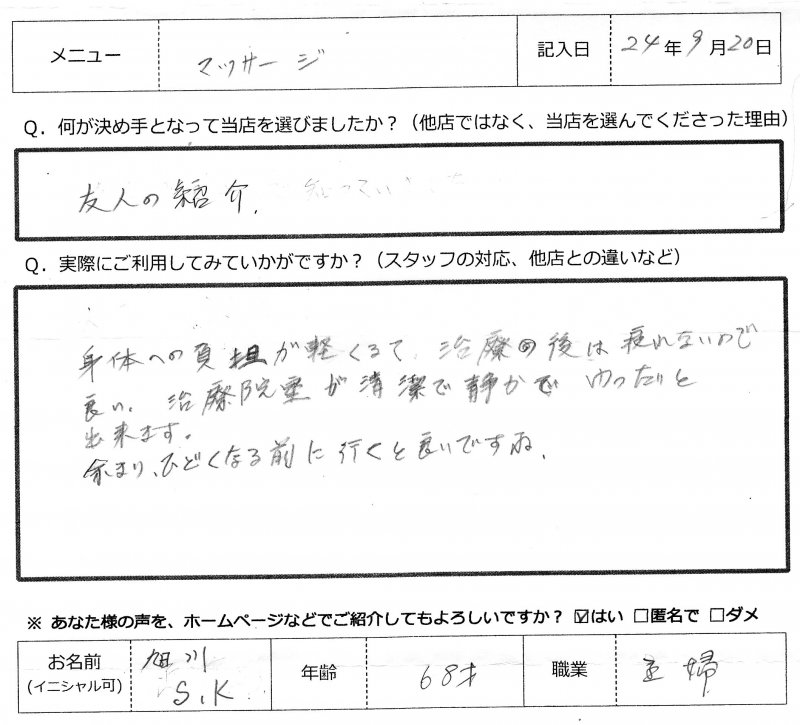 メニュー マッサージ 記入日 24年9月20日
Q. 何が決め手となって当店を選びましたか？（他店ではなく、当店を選んでくださった理由）
友人の紹介.
Q. 実際にご利用してみていかがですか？（スタッフの対応、他店との違いなど）
身体への負担が軽くるて、治療の後は疲れないので
良い。治療院室が清潔で静かで ゆったりと
出来ます。
余まり、ひどくなる前に行くと良いですね.
※ あなた様の声を、ホームページなどでご紹介してもよろしいですか？ ☑はい □匿名で □ダメ
お名前 旭川 年齢 68才 職業 主婦
(イニシャル可) S.K